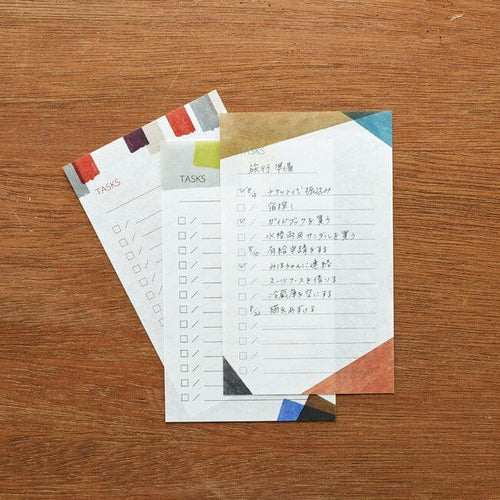 TASKS
TASKS
TASKS
旅行準備
チケット代振込み
宿探し
ガイドブックを買う
水陸両用サンダルを買う
有給申請をする
みほちゃんに連絡
スーツケースを借りる
冷蔵庫を空にする
猫をあずける